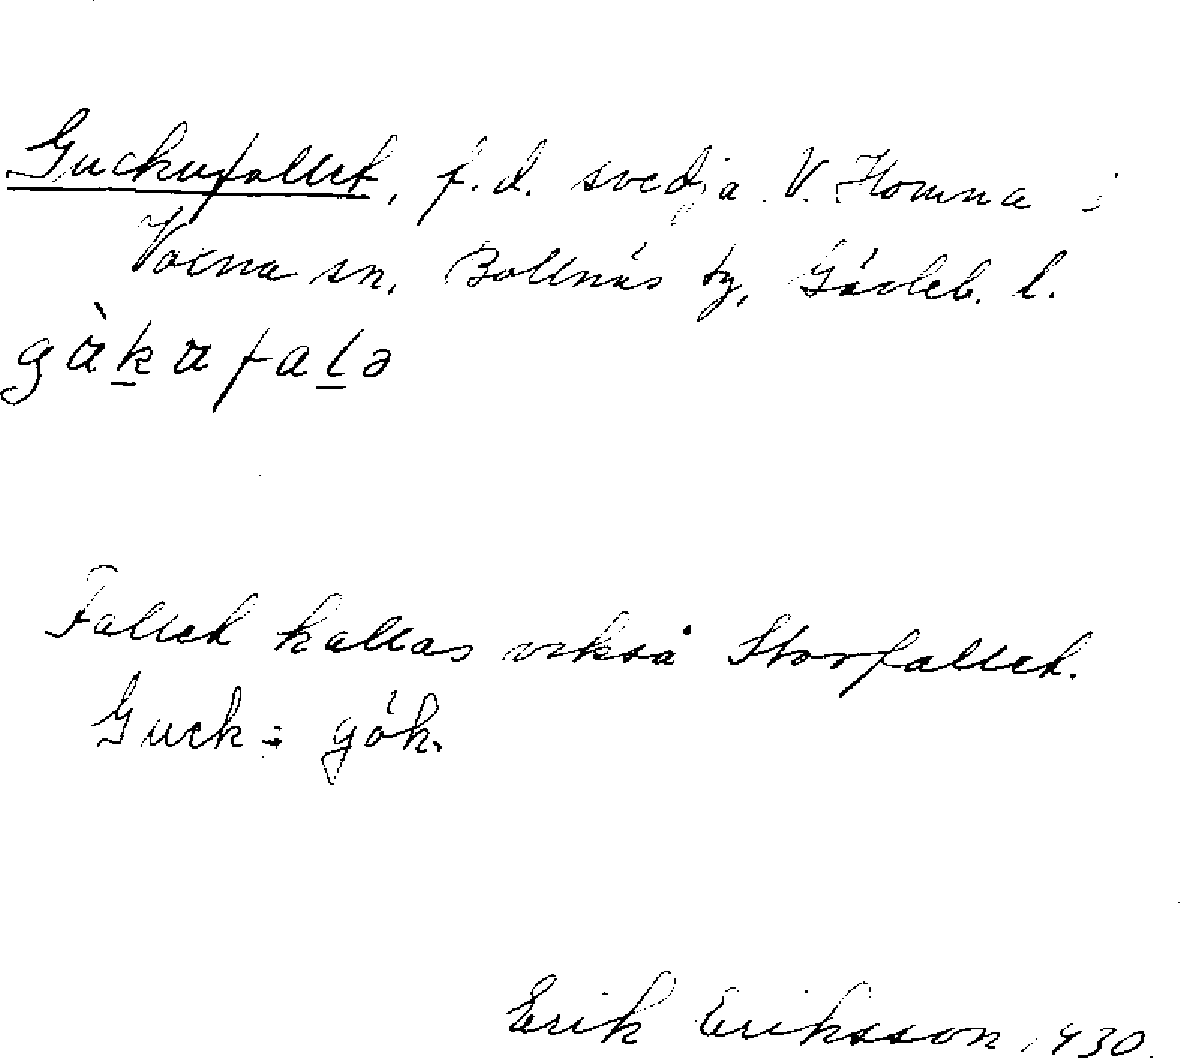 Guckufallet, f.d. svedja V. Homna i
Voxna sn, Bollnäs tg, Gävleb. l.
Fallet kallas också Storfallet.
Guck = gök.
Erik Eriksson 1930.